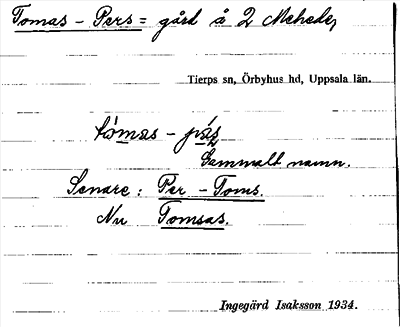 Tomas - Pers = gård å 2 Mehede,
Tierps sn, Örbyhus hd, Uppsala län.
tòmas - pás
Gammalt namn.
Senare: Per - Toms.
Nu Tomsas.
Ingegärd Isaksson 1934.